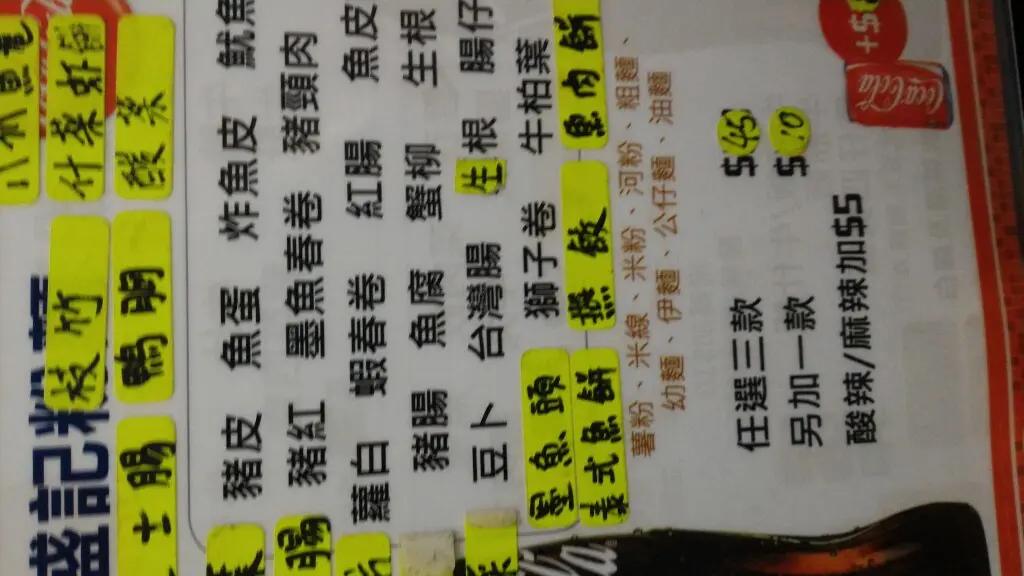 盛記粉麵
八爪魚
什菜
枝竹
酸菜
鴨胸
士腸
豬皮 魚蛋 炸魚皮 魷魚
豬紅 墨魚春卷 豬頸肉
蘿白 蝦春卷 紅腸 魚皮
豬腸 魚腐 蟹柳 生根
豆卜 台灣腸 生根 腸仔
獅子卷 牛柏葉
墨魚頭 燕餃 魚肉餅
式魚餅
薯粉、米線、米粉、河粉、粗麵、
幼麵、伊麵、公仔麵、油麵
任選三款 $45
另加一款 $10
酸辣/麻辣加$5
+$
Coca-Cola